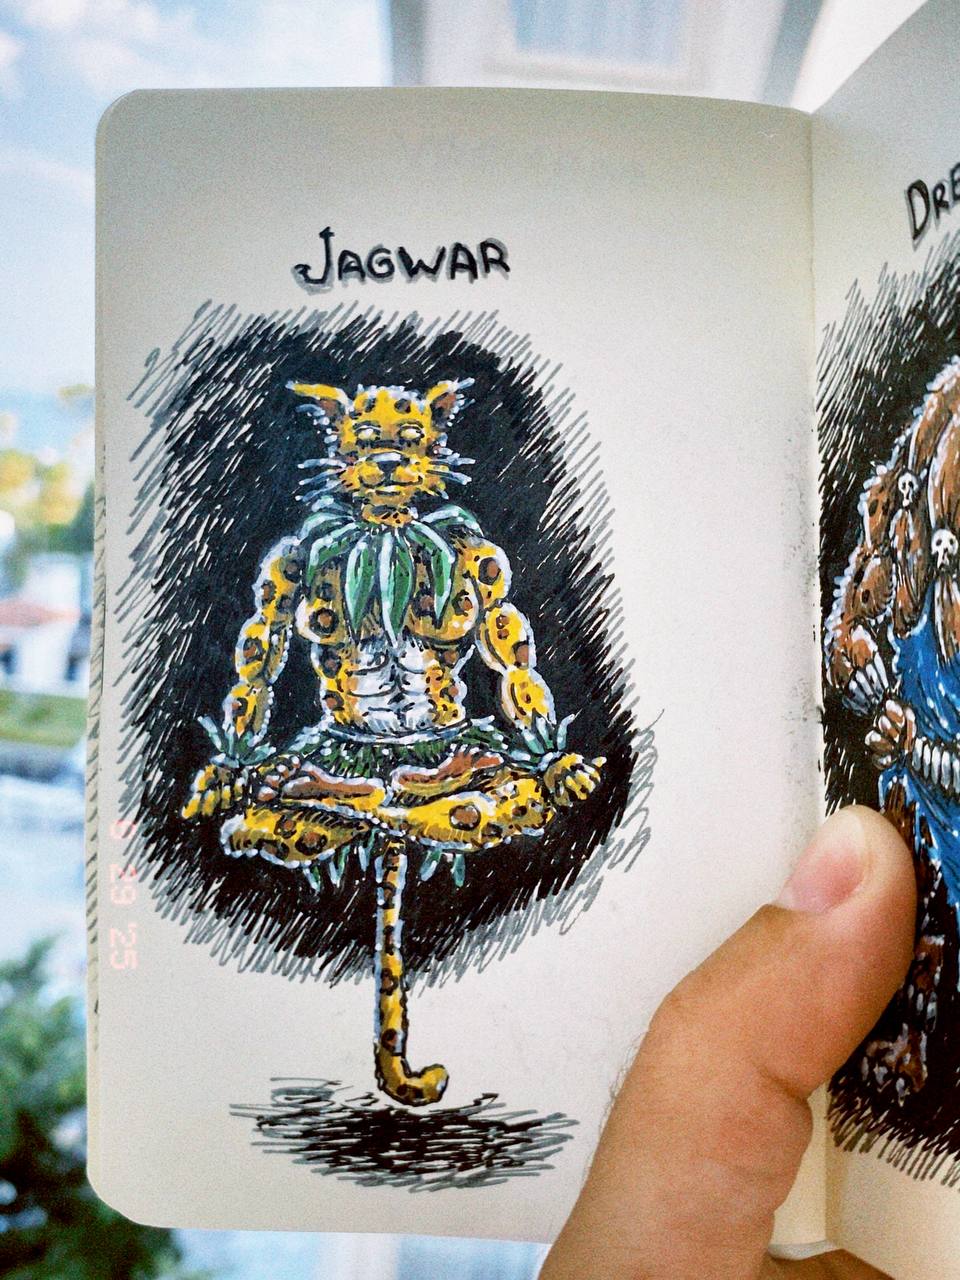 JAGWAR
DRE
6 29 '25